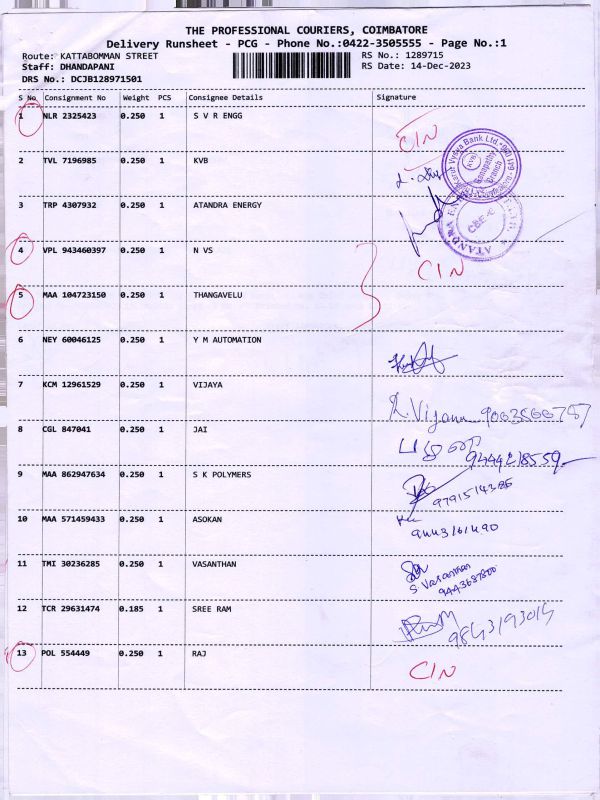 THE PROFESSIONAL COURIERS, COIMBATORE
Delivery Runsheet - PCG - Phone No.:0422-3505555 - Page No.:1
Route: KATTABOMMAN STREET RS No.: 1289715
Staff: DHANDAPANI RS Date: 14-Dec-2023
DRS No.: DCJB128971501
S No Consignment No Weight PCS Consignee Details Signature
1 NLR 2325423 0.250 1 S V R ENGG CIN
2 TVL 7196985 0.250 1 KVB
3 TRP 4307932 0.250 1 ATANDRA ENERGY
4 VPL 943460397 0.250 1 N VS CIN
5 MAA 104723150 0.250 1 THANGAVELU
6 NEY 60046125 0.250 1 Y M AUTOMATION
7 KCM 12961529 0.250 1 VIJAYA
8 CGL 847041 0.250 1 JAI 9444218559
9 MAA 862947634 0.250 1 S K POLYMERS
10 MAA 571459433 0.250 1 ASOKAN 9443161490
11 TMI 30236285 0.250 1 VASANTHAN S Vasanthan
12 TCR 29631474 0.185 1 SREE RAM
13 POL 554449 0.250 1 RAJ CIN